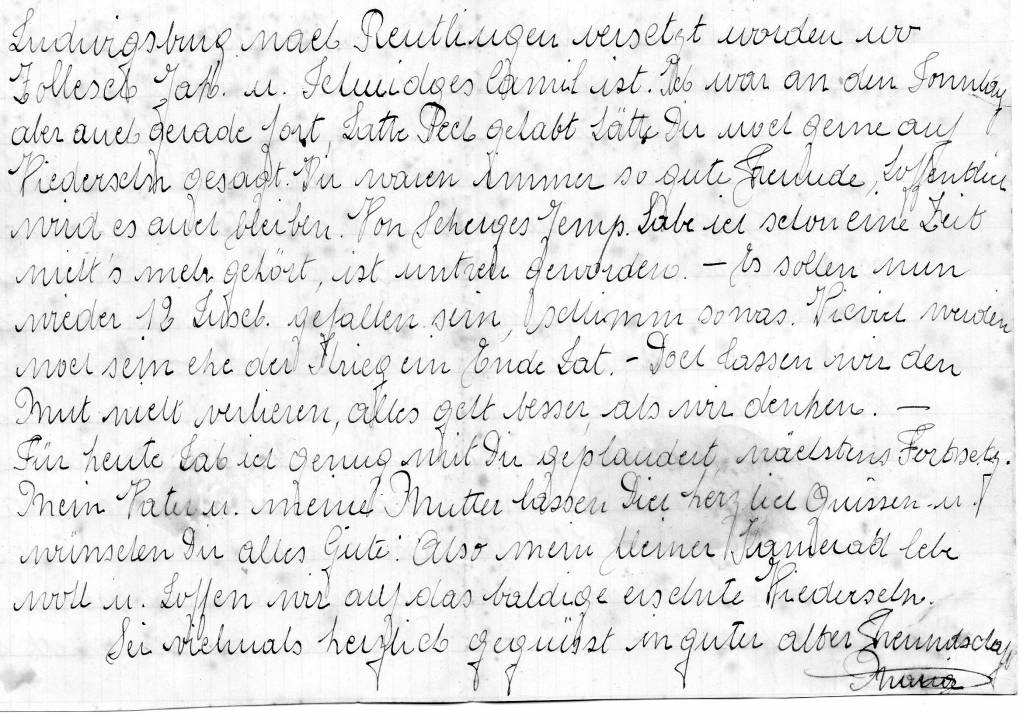 Ludwigsburg nach Reutlingen versetzt worden wo
Zollesch Jak. u. Schmidges Camil ist. Ich war an den Sonntag
aber auch gerade fort, hatte Pech gehabt hätte Dir noch gerne auf
Wiedersehn gesagt. Wir waren immer so gute Freunde, hoffentlich
wird es auch bleiben. Von Scherges Jemp. habe ich schon eine Zeit
nicht's mehr gehört, ist untreu geworden. — Es sollen nun
wieder 12 gefallen sein, schlimm sowas. Wieviel werden
noch sein ehe der Krieg ein Ende hat. - Doch lassen wir den
Mut nicht verlieren, alles geht besser als wir denken. —
Für heute hab ich genug mit Dir geplaudert, nächstens Fortsetz.
Mein Vater u. meine Mutter lassen Dich herzlich Grüssen u.
wünschen Dir alles Gute! Also mein kleiner Kamerad lebe
wohl u. hoffen wir auf das baldige ersehnte Wiedersehn.
Sei vielmals herzlich gegrüsst in guter alter Freundschaft